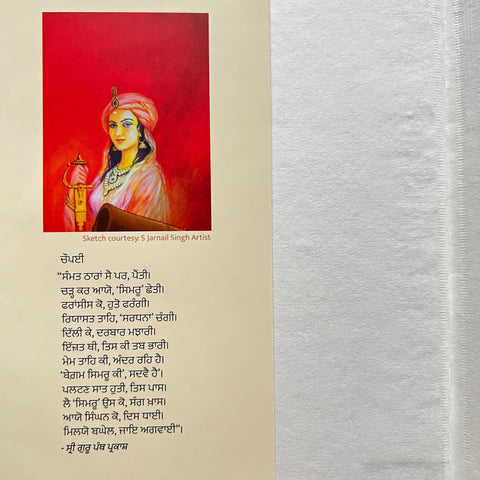 Sketch courtesy: S Jarnail Singh Artist
ਚੌਪਈ
“ਸੰਮਤ ਠਾਰਾਂ ਸੈ ਪਰ, ਪੈਂਤੀ।
ਚੜ੍ਹ ਕਰ ਆਯੋ, ‘ਸਿਮਰੂ’ ਛੇਤੀ।
ਫਰਾਂਸੀਸ ਕੋ, ਹੁਤੋ ਫਰੰਗੀ।
ਰਿਯਾਸਤ ਤਾਹਿ, ‘ਸਰਧਨਾ’ ਚੰਗੀ।
ਦਿੱਲੀ ਕੇ, ਦਰਬਾਰ ਮਝਾਰੀ।
ਇੱਜ਼ਤ ਥੀ, ਤਿਸ ਕੀ ਤਬ ਭਾਰੀ।
ਮੇਮ ਤਾਹਿ ਕੀ, ਅੰਦਰ ਰਹਿ ਹੈ।
‘ਬੇਗ਼ਮ ਸਿਮਰੂ ਕੀ’, ਸਦਵੈ ਹੈ’।
ਪਲਟਣ ਸਾਤ ਹੁਤੀ, ਤਿਸ ਪਾਸ।
ਲੈ ‘ਸਿਮਰੂ’ ਉਸ ਕੋ, ਸੰਗ ਖ਼ਾਸ।
ਆਯੋ ਸਿੰਘਨ ਕੋ, ਦਿਸ ਧਾਈ।
ਮਿਲਯੋ ਬਘੇਲ, ਜਾਇ ਅਗਵਾਈ”।
- ਸ੍ਰੀ ਗੁਰੂ ਪੰਥ ਪ੍ਰਕਾਸ਼